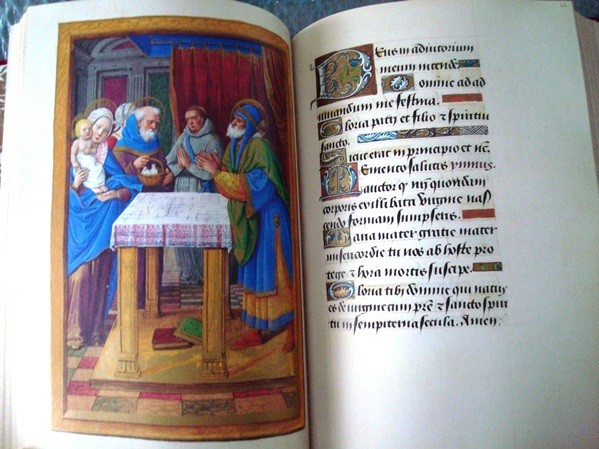 Deus in adiutorium
meum intende
Domine ad ad
iuuandum me festina.
Gloria patri et filio & spiritui
sancto.
Sicut erat in principio et nc̄.
Memento salutis ymnus.
auctor q̄ nr̄i quondam
corporis ex illibata virgine nas
cendo formam sumpseris.
Maria mater gratie mater
misericordie tu nos ab hoste pro
tege & hora mortis suscipe.
Gloria tibi domine qui natus
es de virgine cum pr̄e & sancto spiri
tu in sempiterna secula. Amen.